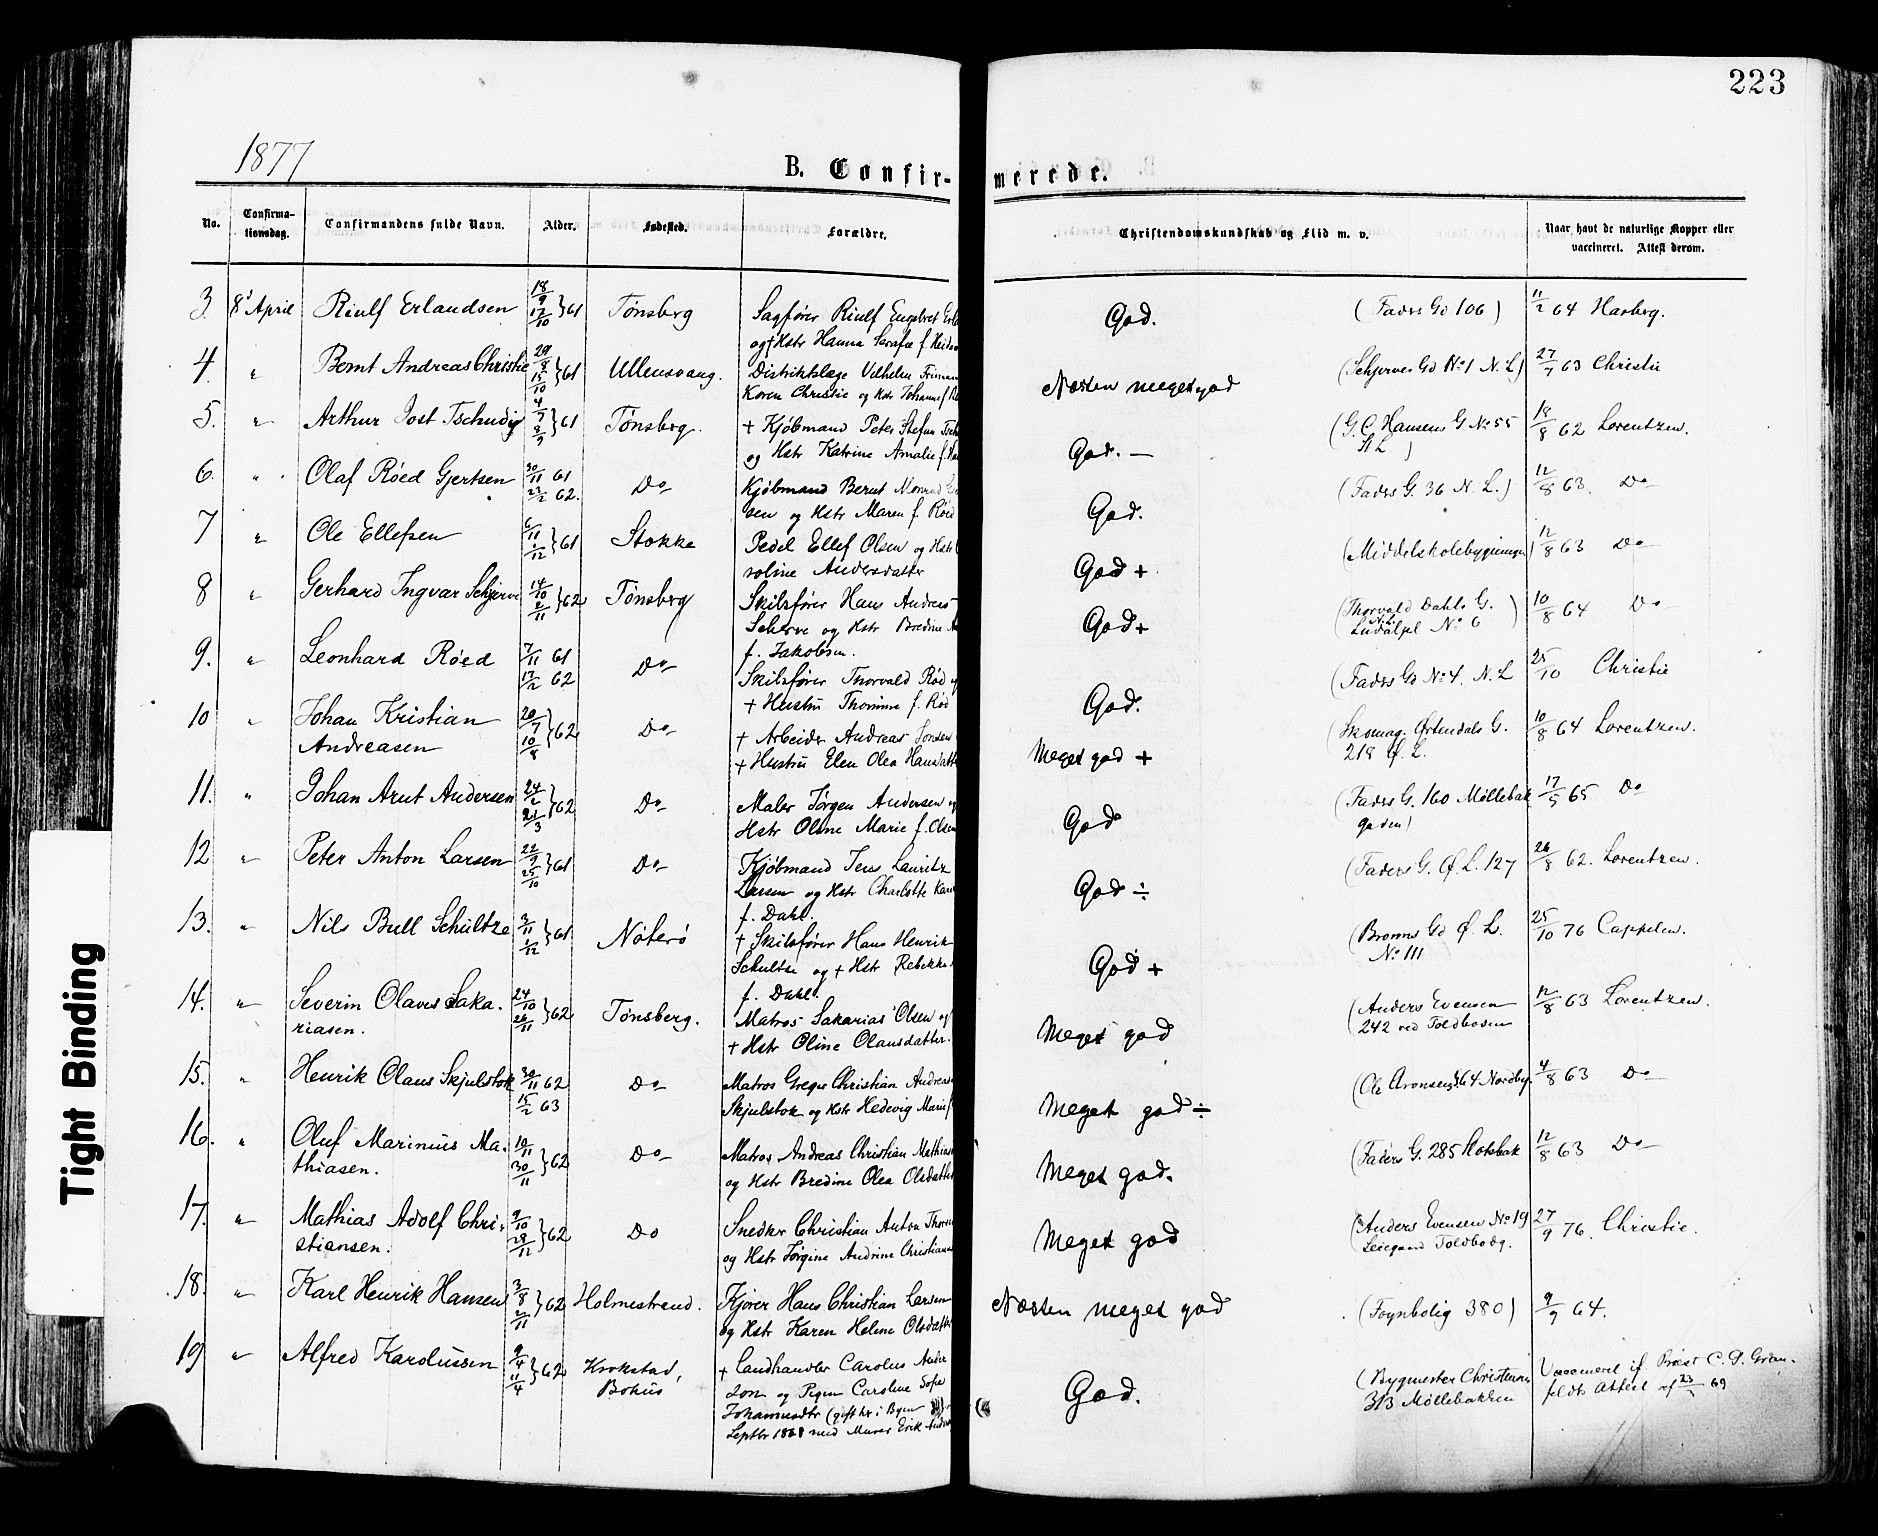 223
1877
B. Confir- merede.
No. Confirma-tionsdag. Confirmandens fulde Navn. Alder. Fødested. Forældre. Christendomskundskab og Flid m. v. Naar havt de naturlige Kopper eller vaccineret. Attest derom.
3. 8de April Riulf Erlandsen 18/9 17/10 } 61 Tønsberg Sagfører Riulf Engebret
og † Hstr Hanna Serafie f. God. (Faders Gd 106) 11/2 64 Harberg.
4. " Bernt Andreas Christie 29/8 15/10 } 61 Ullensvang. Distriktslæge Vilhelm Friman
Koren Christie og Hstr Johanne f. Næsten meget god (Schjerves Gd No 1 N. L) 27/7 63 Christie
5. " Arthur Jost Tschudy 4/7 8/9 } 61 Tønsberg. † Kjøbmand Peter Stefan
og Hstr Katrine Amalie f. God. — (G. C. Hansens G No 55
St L ) 18/8 62 Lorentzen.
6. " Olaf Røed Gjertsen 30/11 61 23/2 62. Do Kjøbmand Bernt Monrad
sen og Hstr Maren f. Röed God. (Faders G. 36 N. L.) 12/8 63. Do
7 " Ole Ellefsen 6/11 1/12 } 61 Stokke Pedel Ellef Olsen og Hstr
roline Andersdatter God + (Middelskolebygningen) 12/8 63 Do
8 " Gerhard Ingvar Schjerve 14/10 2/11 } 62 Tønsberg Skibsfører Hans Andreas
Scherve og Hstr Bredine
f. Jakobsen. God + (Thorvald Dahls G.
N. L. No 6 ) 10/8 64 Do
9. " Leonhard Röed 7/11 61 17/2 62 Do Skibsfører Thorvald Röd
† Hustru Thomine f. Röd God. (Faders Gd No 4. N. L 25/10 Christie
10 " Johan Kristian
Andreasen 20/7 10/8 } 62 Do † Arbeider Andreas Jonsen
† Hustru Elen Olea Hansdatter Meget god + (Skomag. Ørtendals G.
218 Ø. L. 10/8 64 Lorentzen.
11. " Johan Arnt Andersen 24/2 21/3 } 62 Do Maler Jørgen Andersen og
Hstr Oline Marie f. Olsen God (Faders G. 160 Møllebak
gaden) 17/5 65 Do
12 " Peter Anton Larsen 22/9 25/10 } 61 Do Kjøbmand Jens Lauritz
Larsen og Hstr Charlotte
f. Dahl. God ÷ (Faders G. Ø. L. 127 26/8 62. Lorentzen.
13. " Nils Bull Schultze 3/11 1/12 } 61 Nøterø † Skibsfører Hans Henrik
Schultze og † Hstr Rebekke
f. Dahl. God + (Bromns Gd Ø. L.
No 111 25/10 76 Cappelen.
14. " Severin Olaves Saka.
riasen. 24/10 26/11 } 62 Tønsberg. Matros Sakarias Olsen og
† Hstr Oline Olausdatter. Meget god (Anders Evensen
242 ved Toldboden 12/8 63 Lorentzen.
15. " Henrik Claus Skjulstok 30/11 62 15/2 63 Do Matros Greger Christian
Skjulstok og Hstr Hedevig Marie f. Meget god ÷ (Ole Aronsens 164 Nordby. 4/8 63 Do
16. " Oluf Marinius Ma.
thiasen. 19/11 30/11 } 62 Do Matros Andreas Christian
og Hstr Bredine Olea Olsdatter Meget god. (Faders G. 285 Slotsbak 12/8 63 Do
17. " Mathias Adolf Chri.
stiansen. 9/10 28/12 } 62 Do Snedker Christian Anton
og Hstr Jørgine Andrine Meget god (Anders Evensen No 19
Leiegaard Toldbodg. 27/9 76. Christie.
18. " Karl Henrik Hansen 3/8 2/11 } 62 Holmestrand. Kjører Hans Christian Larsen
og Hstr Karen Helene Olsdatter Næsten meget god (Foynbolig 380) 9/7 64.
19 " Alfred Karolussen 9/4 11/4 } 62 Krokstad,
Bohus † Landhandler Carolus Ander
son og Pigen Caroline Sofie
Johannesdtr (gift her i Byen
Septbr 1868 med Murer Erik God. (Bygmester Christensen
313 Møllebakken Vaccineret if. Præst C. D.
feldts Attest af 23/ 69
Tight Binding